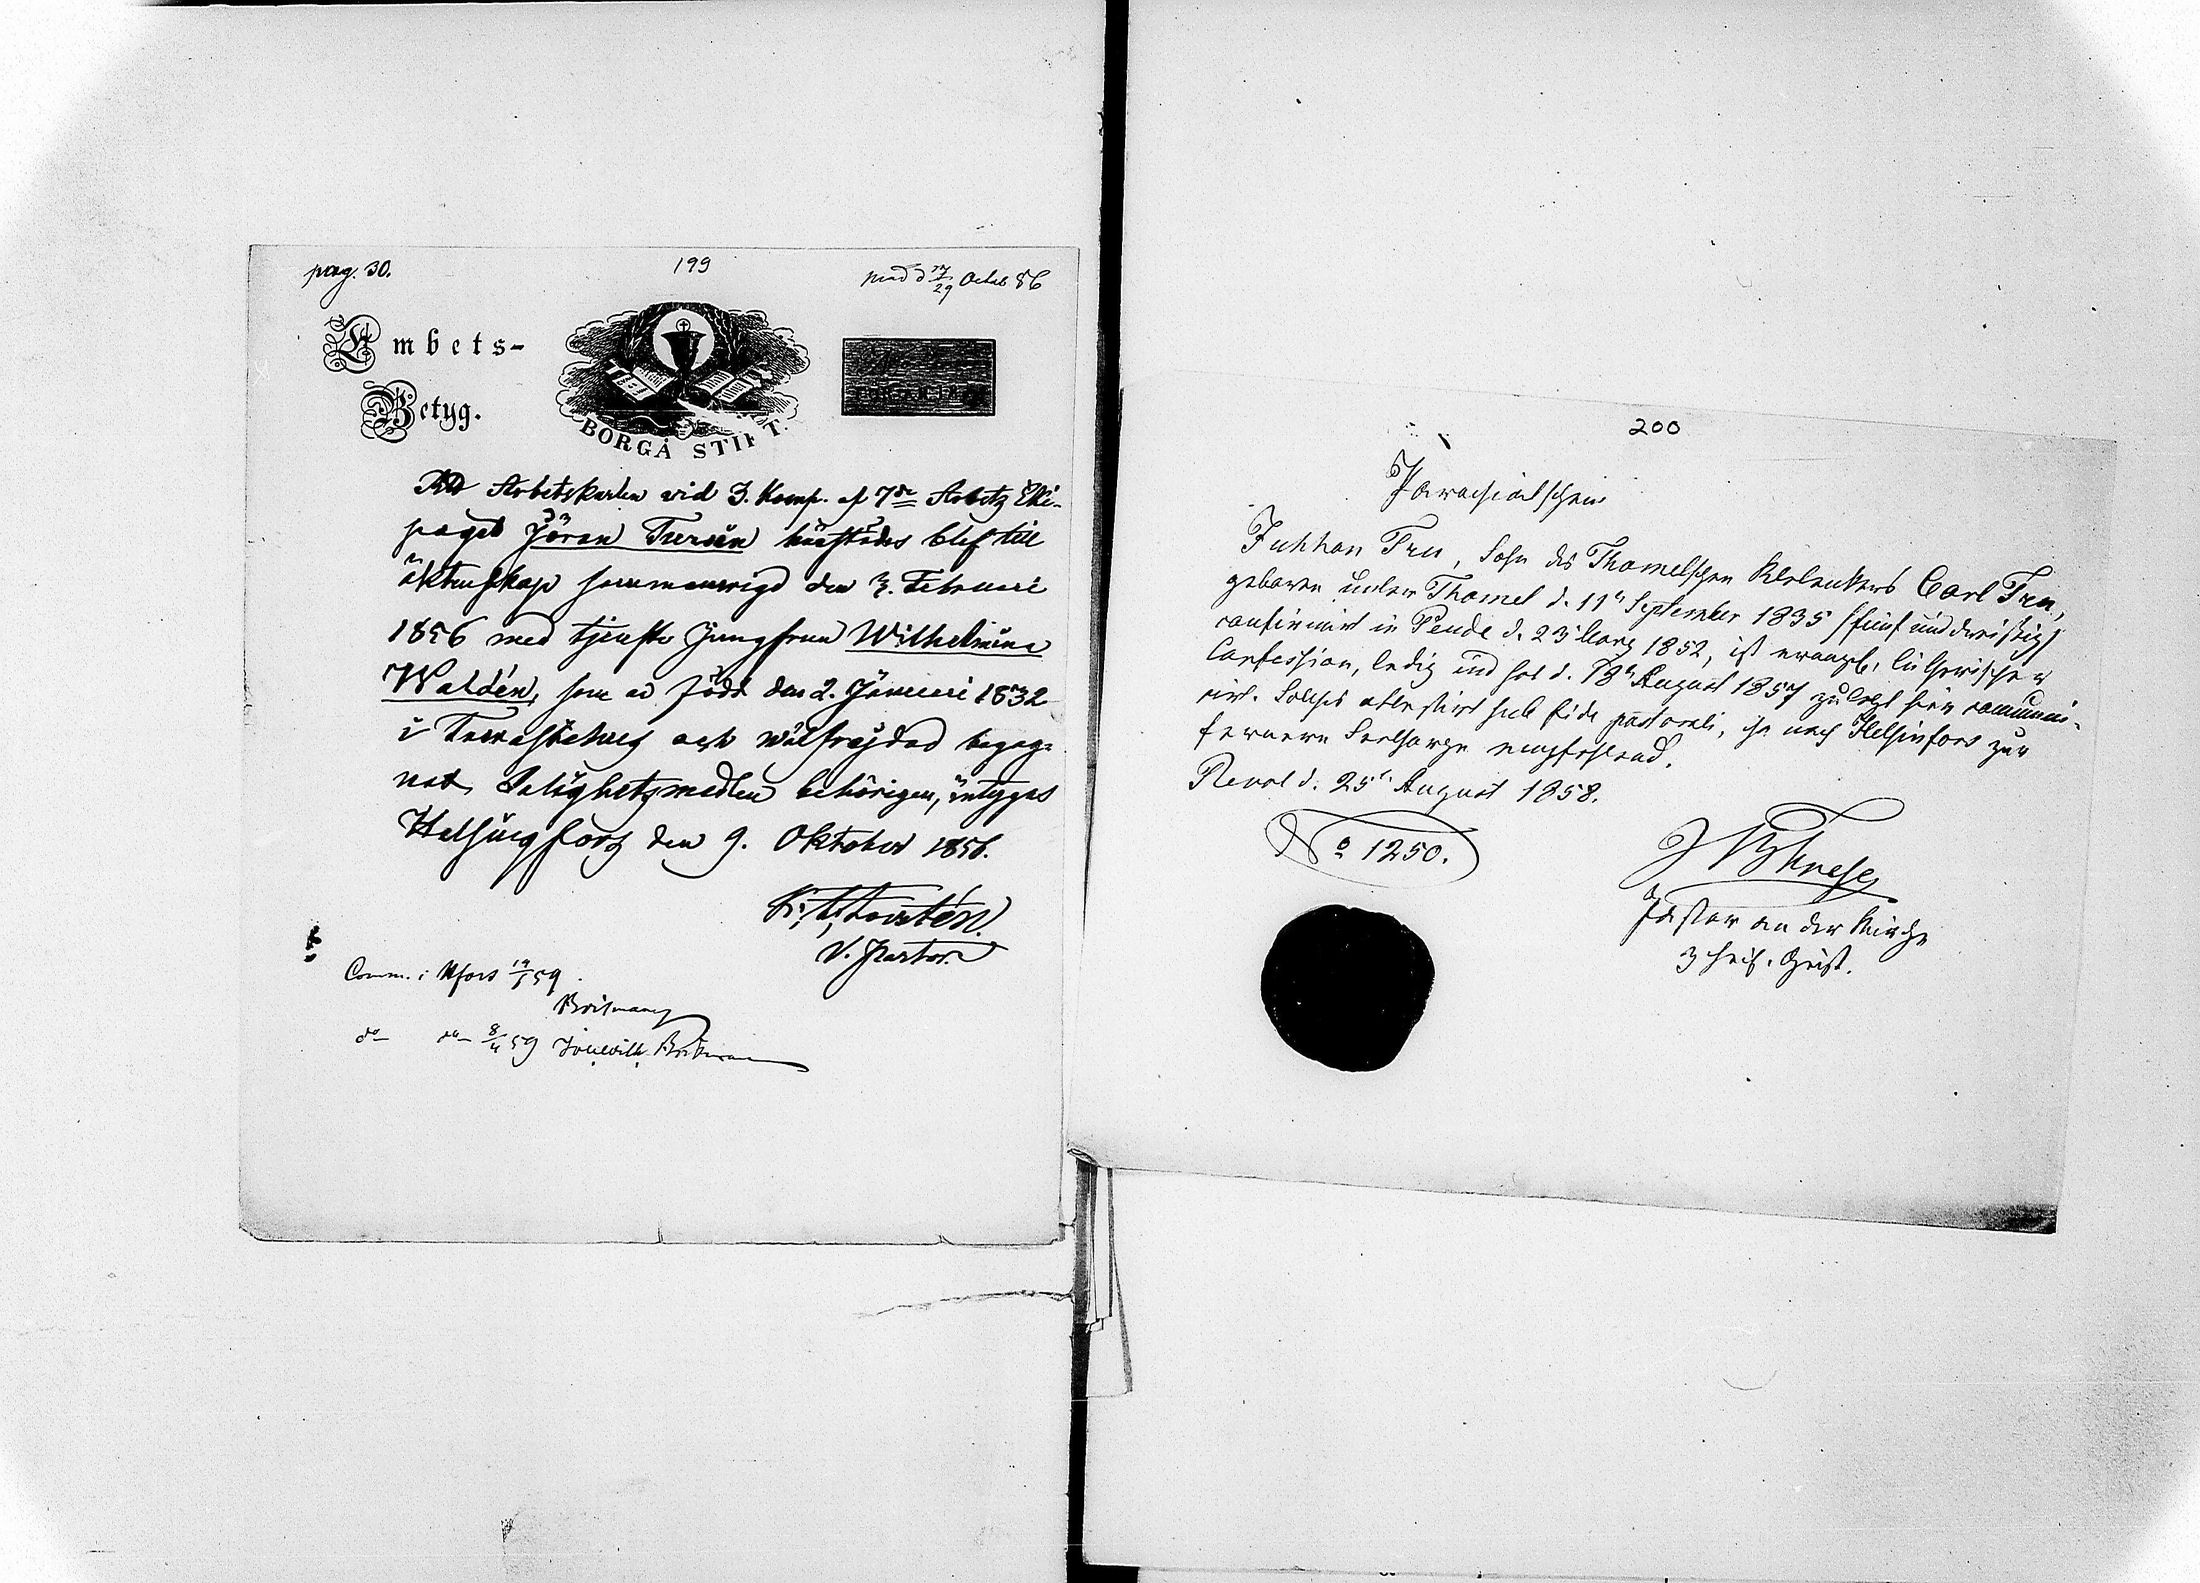 pag. 30.
199
Octob 56
Embets-
Betyg.
BORGÅ STIFT.
Att Arbetskarlen vid 3. Komp. af 7de Arbets Eki-
paget Jöran Tursén härstädes blef till
äktenskap sammanvigd den 3. Februari
1856 med tjenste Jungfrun Wilhelmina
Waldén, som är född den 2. Januari 1832
i Tavastehus och wälfrejdad begag-
nat Salighetsmedlen behörigen, intygas
Helsingfors den 9. Oktober 1856.
V. Pastor.
Comm. i Hfors 19/1 59.
Boisman
do 8/4 59
200
Parochialschein
Juhhan Tru, Sohn des Thomelschen Carl Tru,
geboren unter Thomel d. 11n September 1835 /fünf und dreißig/
confirmirt in Peude d. 23 März 1852, ist evangel. lutherischer
Confession, ledig und hat d. 18n August 1857 zuletzt hier communi-
cirt. Solches attestirt sub fide pastorali, ihn nach Helsinfors zur
fernern Seelsorge empfehlend.
Reval d. 25t August 1858.
No 1250.
Pastor an der Kirche
z. heil. Geist.